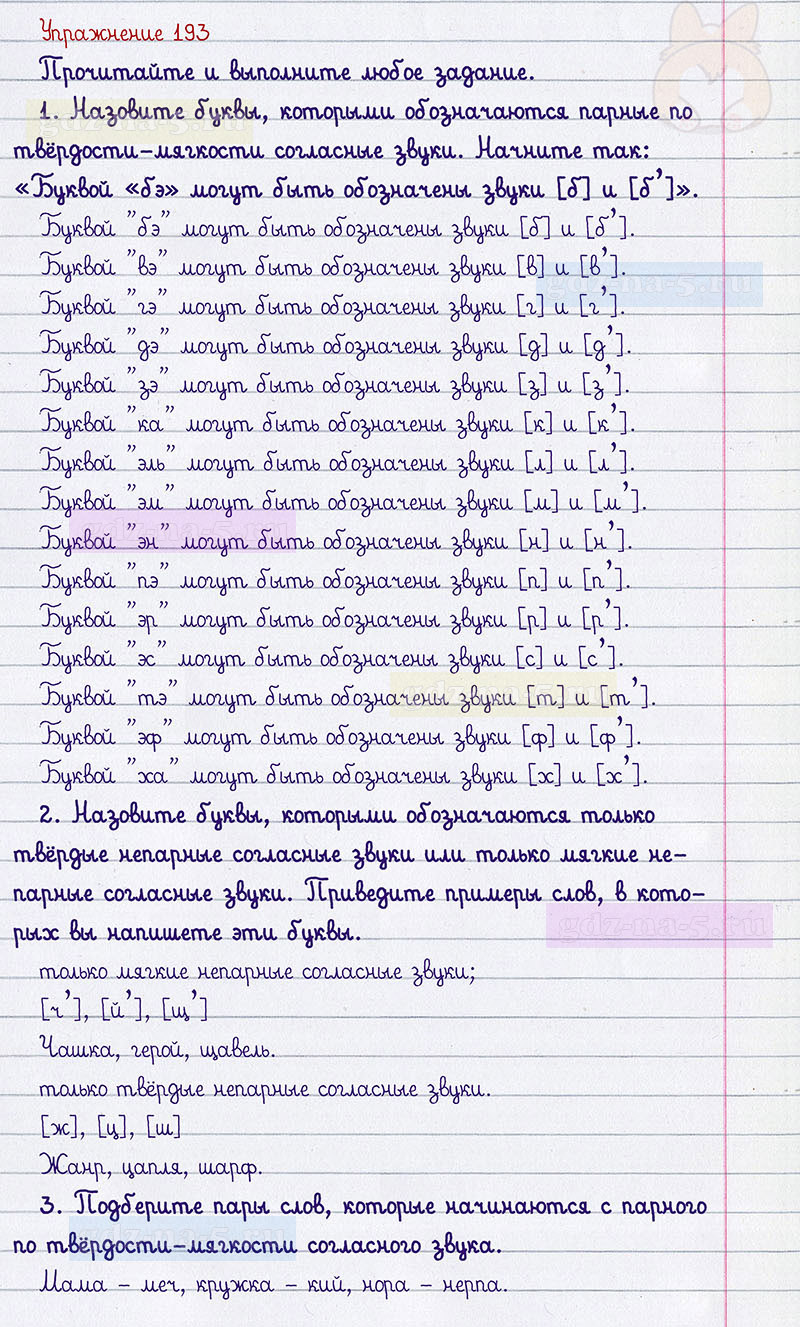 Упражнение 193
Прочитайте и выполните любое задание.
1. Назовите буквы, которыми обозначаются парные по
твёрдости-мягкости согласные звуки. Начните так:
«Буквой «бэ» могут быть обозначены звуки [б] и [б’]».
Буквой "бэ" могут быть обозначены звуки [б] и [б’].
Буквой "вэ" могут быть обозначены звуки [в] и [в’].
gdz-na-5.ru
Буквой "гэ" могут быть обозначены звуки [г] и [г’].
Буквой "дэ" могут быть обозначены звуки [д] и [д’].
Буквой "зэ" могут быть обозначены звуки [з] и [з’].
Буквой "ка" могут быть обозначены звуки [к] и [к’].
Буквой "эль" могут быть обозначены звуки [л] и [л’].
Буквой "эм" могут быть обозначены звуки [м] и [м’].
gdz-na-5.ru
Буквой "эн" могут быть обозначены звуки [н] и [н’].
Буквой "пэ" могут быть обозначены звуки [п] и [п’].
Буквой "эр" могут быть обозначены звуки [р] и [р’].
Буквой "эс" могут быть обозначены звуки [с] и [с’].
Буквой "тэ" могут быть обозначены звуки [т] и [т’].
Буквой "эф" могут быть обозначены звуки [ф] и [ф’].
Буквой "ха" могут быть обозначены звуки [х] и [х’].
2. Назовите буквы, которыми обозначаются только
твёрдые непарные согласные звуки или только мягкие не-
парные согласные звуки. Приведите примеры слов, в кото-
рых вы напишете эти буквы.
gdz-na-5.ru
только мягкие непарные согласные звуки;
[ч’], [й’], [щ’]
Чашка, герой, щавель.
только твёрдые непарные согласные звуки.
[ж], [ц], [ш]
Жанр, цапля, шарф.
3. Подберите пары слов, которые начинаются с парного
по твёрдости-мягкости согласного звука.
Мама - меч, кружка - кий, нора - нерпа.